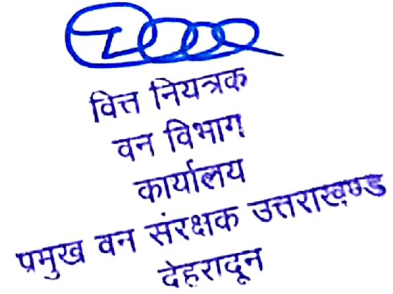 वित्त नियत्रक
वन विभाग
कार्यालय
प्रमुख वन संरक्षक उत्तराखण्ड
देहरादून